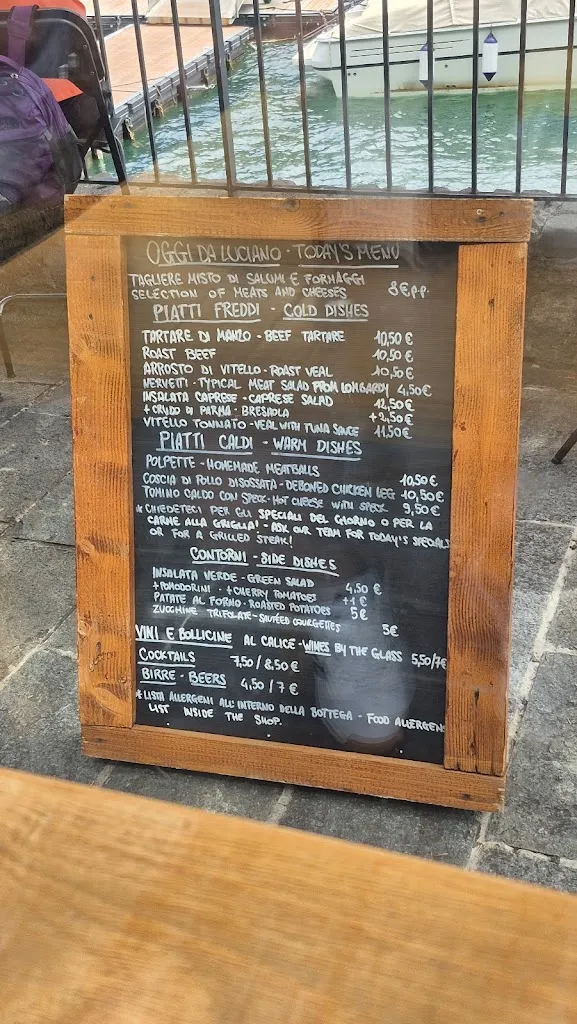 OGGI DA LUCIANO - TODAY'S MENU
TAGLIERE MISTO DI SALUMI E FORMAGGI
SELECTION OF MEATS AND CHEESES 8€ p.p.
PIATTI FREDDI - COLD DISHES
TARTARE DI MANZO - BEEF TARTARE 10,50 €
ROAST BEEF 10,50 €
ARROSTO DI VITELLO - ROAST VEAL 10,50 €
NERVETTI - TYPICAL MEAT SALAD FROM LOMBARDY 4,50 €
INSALATA CAPRESE - CAPRESE SALAD 12,50 €
+ CRUDO DI PARMA - BRESAOLA +2,50 €
VITELLO TONNATO - VEAL WITH TUNA SAUCE 11,50 €
PIATTI CALDI - WARM DISHES
POLPETTE - HOMEMADE MEATBALLS 10,50 €
COSCIA DI POLLO DISOSSATA - DEBONED CHICKEN LEG 10,50 €
TOMINO CALDO CON SPECK - HOT CHEESE WITH SPECK 9,50 €
* CHIEDETECI PER GLI SPECIALI DEL GIORNO O PER LA
CARNE ALLA GRIGLIA! - ASK OUR TEAM FOR TODAY'S SPECIALS
OR FOR A GRILLED STEAK!
CONTORNI - SIDE DISHES
INSALATA VERDE - GREEN SALAD 4,50 €
+ POMODORINI - + CHERRY TOMATOES +1 €
PATATE AL FORNO - ROASTED POTATOES 5€
ZUCCHINE TRIFOLATE - SAUTÉED COURGETTES 5€
VINI E BOLLICINE AL CALICE - WINES BY THE GLASS 5,50/7€
COCKTAILS 7,50 / 8,50 €
BIRRE - BEERS 4,50 / 7 €
* LISTA ALLERGENI ALL'INTERNO DELLA BOTTEGA - FOOD ALLERGENS
LIST INSIDE THE SHOP.